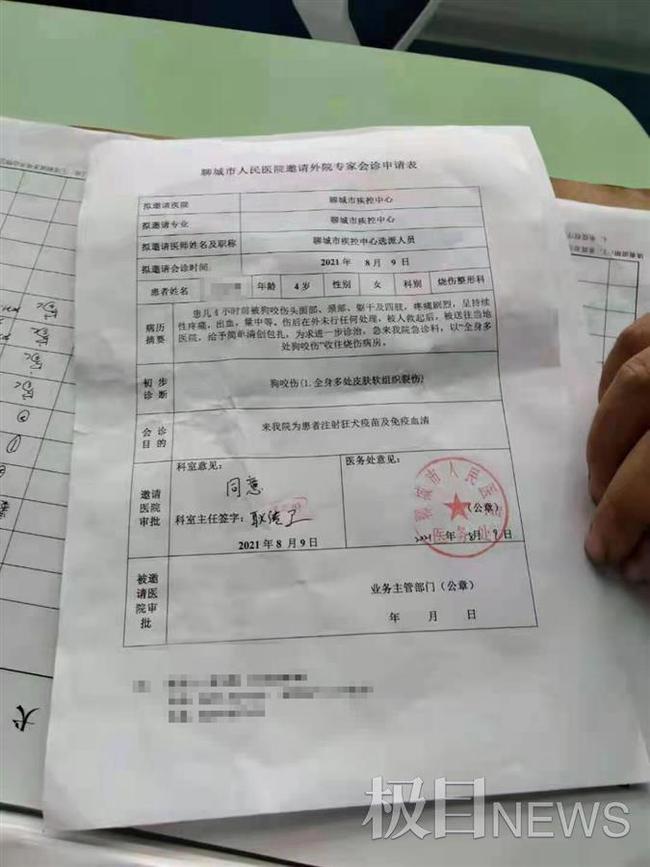 聊城市人民医院邀请外院专家会诊申请表
拟邀请医院 聊城市疾控中心
拟邀请专业 聊城市疾控中心
拟邀请医师姓名及职称 聊城市疾控中心选派人员
拟邀请会诊时间: 2021 年 8 月 9 日
患者姓名 年龄 4岁 性别 女 科别 烧伤整形科
病历摘要
患儿4小时前被狗咬伤头面部、颈部、躯干及四肢,疼痛剧烈,呈持续
性疼痛,出血,量中等。伤后在外未行任何处理,被人救起后,被送往当地
医院,给予简单清创包扎,为求进一步诊治,急来我院急诊科,以“全身多
处狗咬伤”收住烧伤病房。
初步诊断
狗咬伤(1.全身多处皮肤软组织裂伤)
会诊目的
来我院为患者注射狂犬疫苗及免疫血清
邀请医院审批
科室意见: 医务处意见:
同意
科室主任签字: (公章)
2021年 8 月 9 日 2021年 8月 9日
聊城市人民医院
医务处
被邀请医院审批
业务主管部门(公章)
年 月 日
犬
极目NEWS